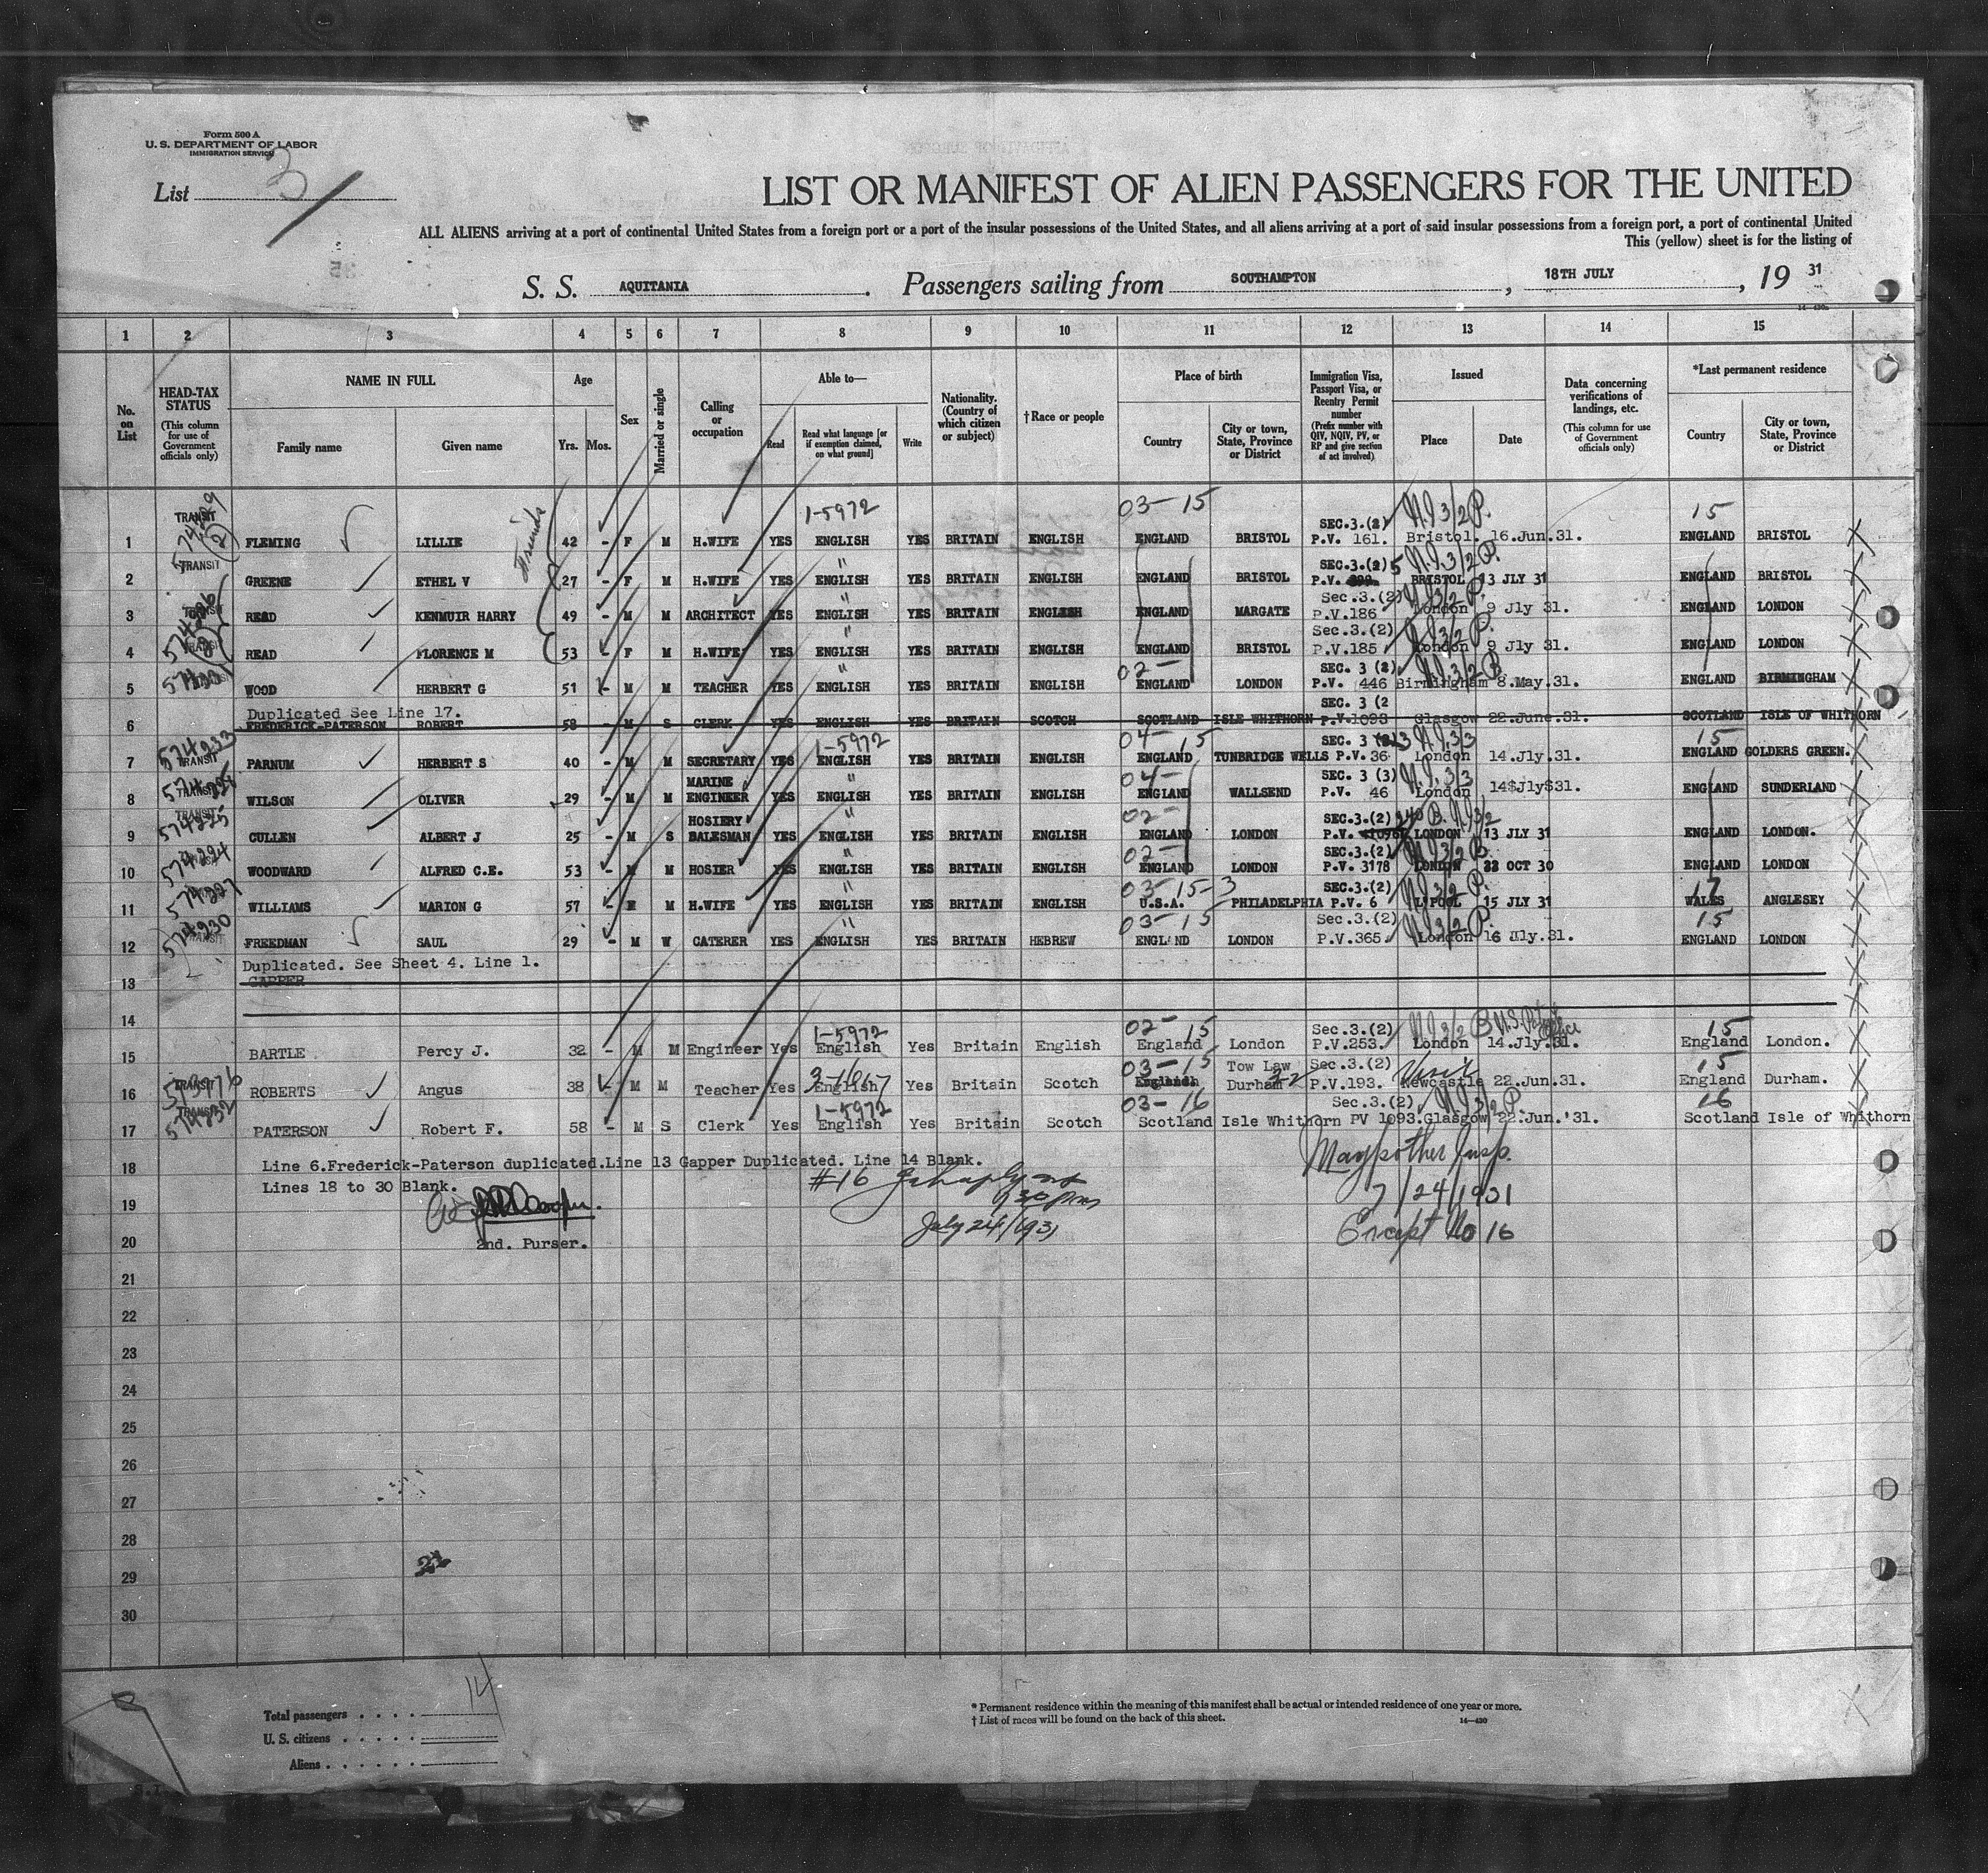 Form 500 A
U. S. DEPARTMENT OF LABOR
IMMIGRATION SERVICE
List 3
LIST OR MANIFEST OF ALIEN PASSENGERS FOR THE UNITED
ALL ALIENS arriving at a port of continental United States from a foreign port or a port of the insular possessions of the United States, and all aliens arriving at a port of said insular possessions from a foreign port, a port of continental United
This (yellow) sheet is for the listing of
S. S. AQUITANIA. Passengers sailing from SOUTHAMPTON, 18TH JULY, 19 31
1 2 3 4 5 6 7 8 9 10 11 12 13 14 15
No. on List
HEAD-TAX STATUS (This column for use of Government officials only)
NAME IN FULL Family name Given name
Age Yrs. Mos.
Sex
Married or single
Calling or occupation
Able to— Read Read what language [or if exemption claimed, on what ground] Write
Nationality. (Country of which citizen or subject)
†Race or people
Place of birth Country City or town, State, Province or District
Immigration Visa, Passport Visa, or Reentry Permit number (Prefix number with QIV, NQIV, PV, or RP and give section of act involved)
Issued Place Date
Data concerning verifications of landings, etc. (This column for use of Government officials only)
*Last permanent residence Country City or town, State, Province or District
TRANSIT 1-5972 03-15 SEC.3.(2) 15
1 FLEMING LILLIE 42 - F M H.WIFE YES ENGLISH YES BRITAIN ENGLISH ENGLAND BRISTOL P.V. 161. Bristol. 16.Jun.31. ENGLAND BRISTOL
Friends
TRANSIT " SEC.3.(2)
2 GREENE ETHEL V 27 - F M H.WIFE YES ENGLISH YES BRITAIN ENGLISH ENGLAND BRISTOL P.V. BRISTOL 13 JLY 31 ENGLAND BRISTOL
" Sec.3.(2)
3 READ KENMUIR HARRY 49 - M M ARCHITECT YES ENGLISH YES BRITAIN ENGLISH ENGLAND MARGATE P.V.186 London 9 Jly 31. ENGLAND LONDON
" Sec.3.(2)
4 READ FLORENCE M 53 - F M H.WIFE YES ENGLISH YES BRITAIN ENGLISH ENGLAND BRISTOL P.V.185 London 9 Jly 31. ENGLAND LONDON
" 02- SEC. 3 (2)
5 WOOD HERBERT G 51 - M M TEACHER YES ENGLISH YES BRITAIN ENGLISH ENGLAND LONDON P.V. 446 Birmingham 8.May.31. ENGLAND BIRMINGHAM
Duplicated See Line 17. SEC. 3 (2
6 FREDERICK-PATERSON ROBERT 58 - M S CLERK YES ENGLISH YES BRITAIN SCOTCH SCOTLAND ISLE WHITHORN P.V.1093 Glasgow 22.June.31. SCOTLAND ISLE OF WHITHORN
574233 TRANSIT 1-5972 04-15 SEC. 3 15
7 PARNUM HERBERT S 40 - M M SECRETARY YES ENGLISH YES BRITAIN ENGLISH ENGLAND TUNBRIDGE WELLS P.V. 36 London 14.Jly.31. ENGLAND GOLDERS GREEN.
TRANSIT MARINE " 04- SEC. 3 (3)
8 WILSON OLIVER 29 - M M ENGINEER YES ENGLISH YES BRITAIN ENGLISH ENGLAND WALLSEND P.V. 46 London 14$Jly$31. ENGLAND SUNDERLAND
TRANSIT 574225 HOSIERY " 02- SEC.3.(2)
9 CULLEN ALBERT J 25 - M S SALESMAN YES ENGLISH YES BRITAIN ENGLISH ENGLAND LONDON P.V. LONDON 13 JLY 31 ENGLAND LONDON.
574224 " 02- SEC.3.(2)
10 WOODWARD ALFRED C.E. 53 - M M HOSIER YES ENGLISH YES BRITAIN ENGLISH ENGLAND LONDON P.V. 3178 LONDON 22 OCT 30 ENGLAND LONDON
574227 " 03-15-3 SEC.3.(2) 17
11 WILLIAMS MARION G 57 - M H.WIFE YES ENGLISH YES BRITAIN ENGLISH U.S.A. PHILADELPHIA P.V. 6 L'POOL 15 JLY 31 WALES ANGLESEY
574230 TRANSIT " 03-15 Sec.3.(2) 15
12 FREEDMAN SAUL 29 - M W CATERER YES ENGLISH YES BRITAIN HEBREW ENGLAND LONDON P.V.365. London 16 Jly.31. ENGLAND LONDON
Duplicated. See Sheet 4. Line 1.
13 GAPPER
14
1-5972 02-15 Sec.3.(2) 15
15 BARTLE Percy J. 32 - M M Engineer Yes English Yes Britain English England London P.V.253. London 14.Jly.31. England London.
TRANSIT 03-15 Tow Law Sec.3.(2) Visit 15
16 ROBERTS Angus 38 - M M Teacher Yes English Yes Britain Scotch England Durham P.V.193. Newcastle 22.Jun.31. England Durham.
TRANSIT 574232 1-5972 03-16 Sec.3.(2) 16
17 PATERSON Robert F. 58 - M S Clerk Yes English Yes Britain Scotch Scotland Isle Whithorn PV 1093.Glasgow 22.Jun.'31. Scotland Isle of Whithorn
18 Line 6.Frederick-Paterson duplicated.Line 13 Gapper Duplicated. Line 14 Blank.
Lines 18 to 30 Blank. #16
19 7/24/1931
July 24/1931 Except No 16
20 2nd. Purser.
21
22
23
24
25
26
27
28
29
30
Total passengers . . . . 14
U. S. citizens . . . . .
Aliens . . . . . .
* Permanent residence within the meaning of this manifest shall be actual or intended residence of one year or more.
† List of races will be found on the back of this sheet. 14—430